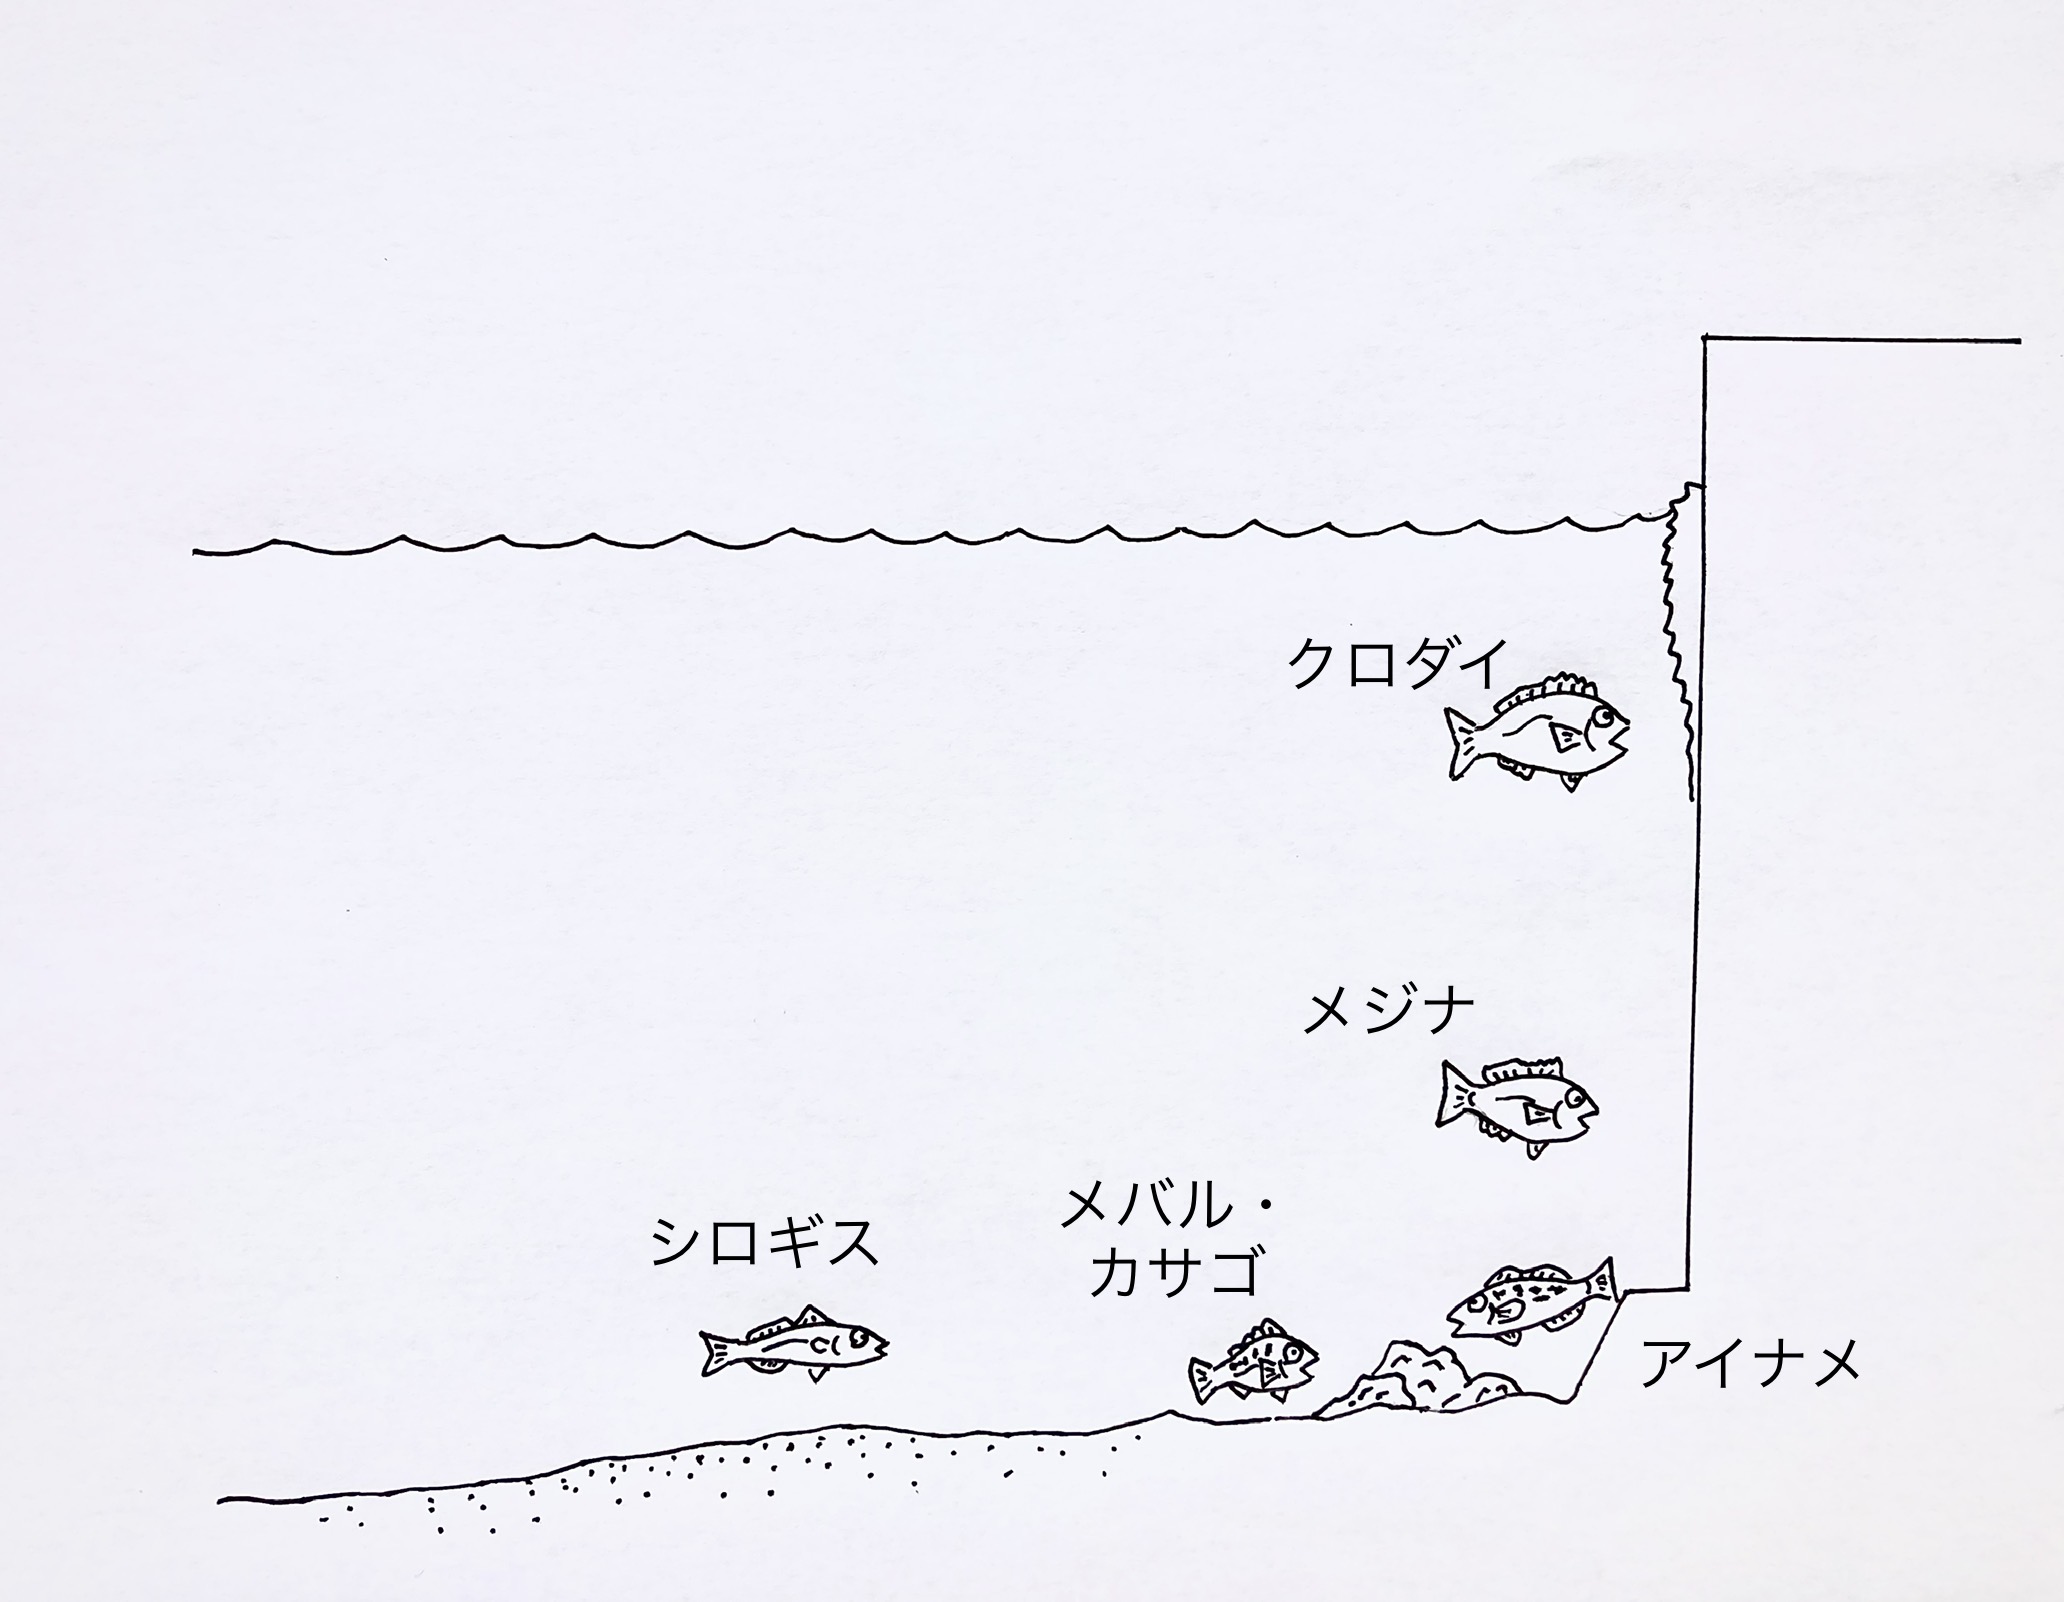 クロダイ
メジナ
メバル・
カサゴ
シロギス
アイナメ